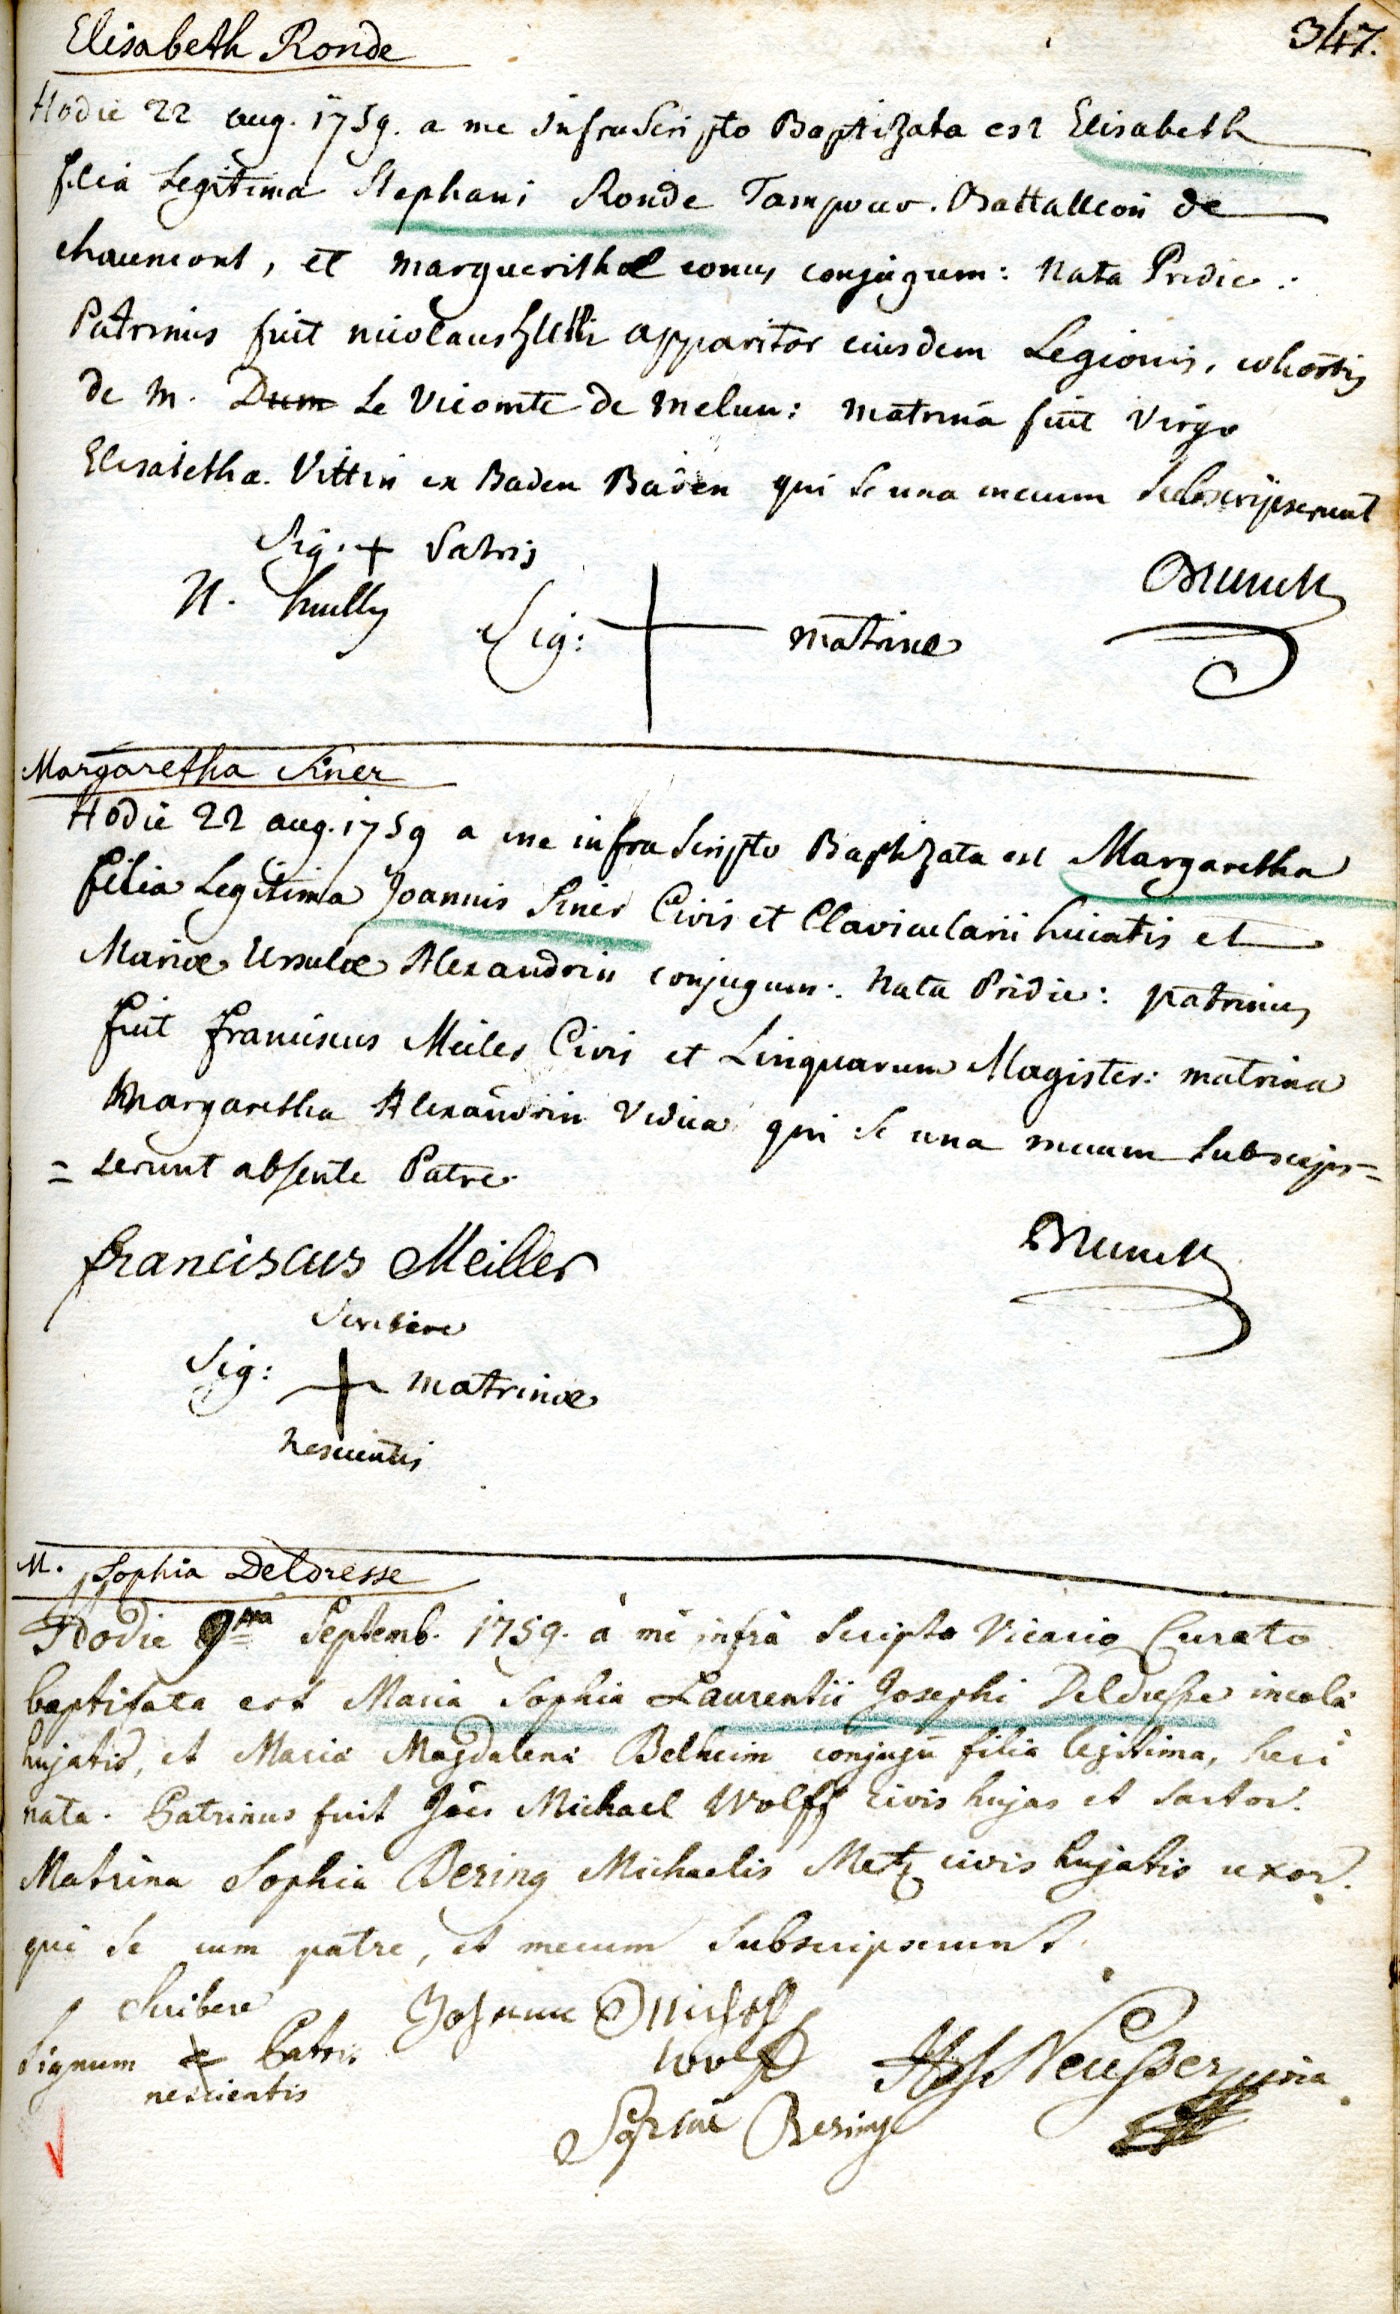 347.
Elisabeth Ronde
Hodie 22 aug. 1759. a me infra Scripto Baptizata est Elisabeth
filia Legitima Stephani Ronde Tampour. Battalleon de
chaumont, et marguerithæ conjugum: Nata Pridie:
Patrinus fuit nicolaus apparitor eiusdem Legionis, cohortis
de M. Dum Le Vicomte de melun: matrina fuit Virgo
Elisabetha. Vittin ex Baden Baden qui se una mecum Subscripserunt
Sig. + Patris
N.
Sig: + matrinæ
Margaretha Siner
Hodie 22 aug. 1759 a me infra Scripto Baptizata est Margaretha
filia Legitima Joannis Siner Civis et Clavicularii huiatis et
Mariæ Ursulæ Alexandrin conjugum: Nata Pridie: patrinus
fuit franciscus Meiler Civis et Linguarum Magister: matrina
Margaretha Alexandrin Vidua qui se una mecum Subscrips=
= serunt absente Patre.
franciscus Meiller
Scribere
Sig: + matrinæ
nescientis
M. Sophia Deldresse
Hodie 9na Septemb. 1759. à me infrà Scripto Vicario Curato
baptisata est Maria Sophia Laurentii Josephi Deldresse incolæ
hujatis, et Mariæ Magdalenæ Belheim conjugū filia legitima, heri
nata. Patrinus fuit Jões Michael Wolff Civis hujas et Sartor.
Matrina Sophia Bering Michaelis Metz civis hujatis uxor.
qui se cum patre, et mecum Subscripserunt.
Scribere
Signum + Patris
nescientis
Wolff
Bering